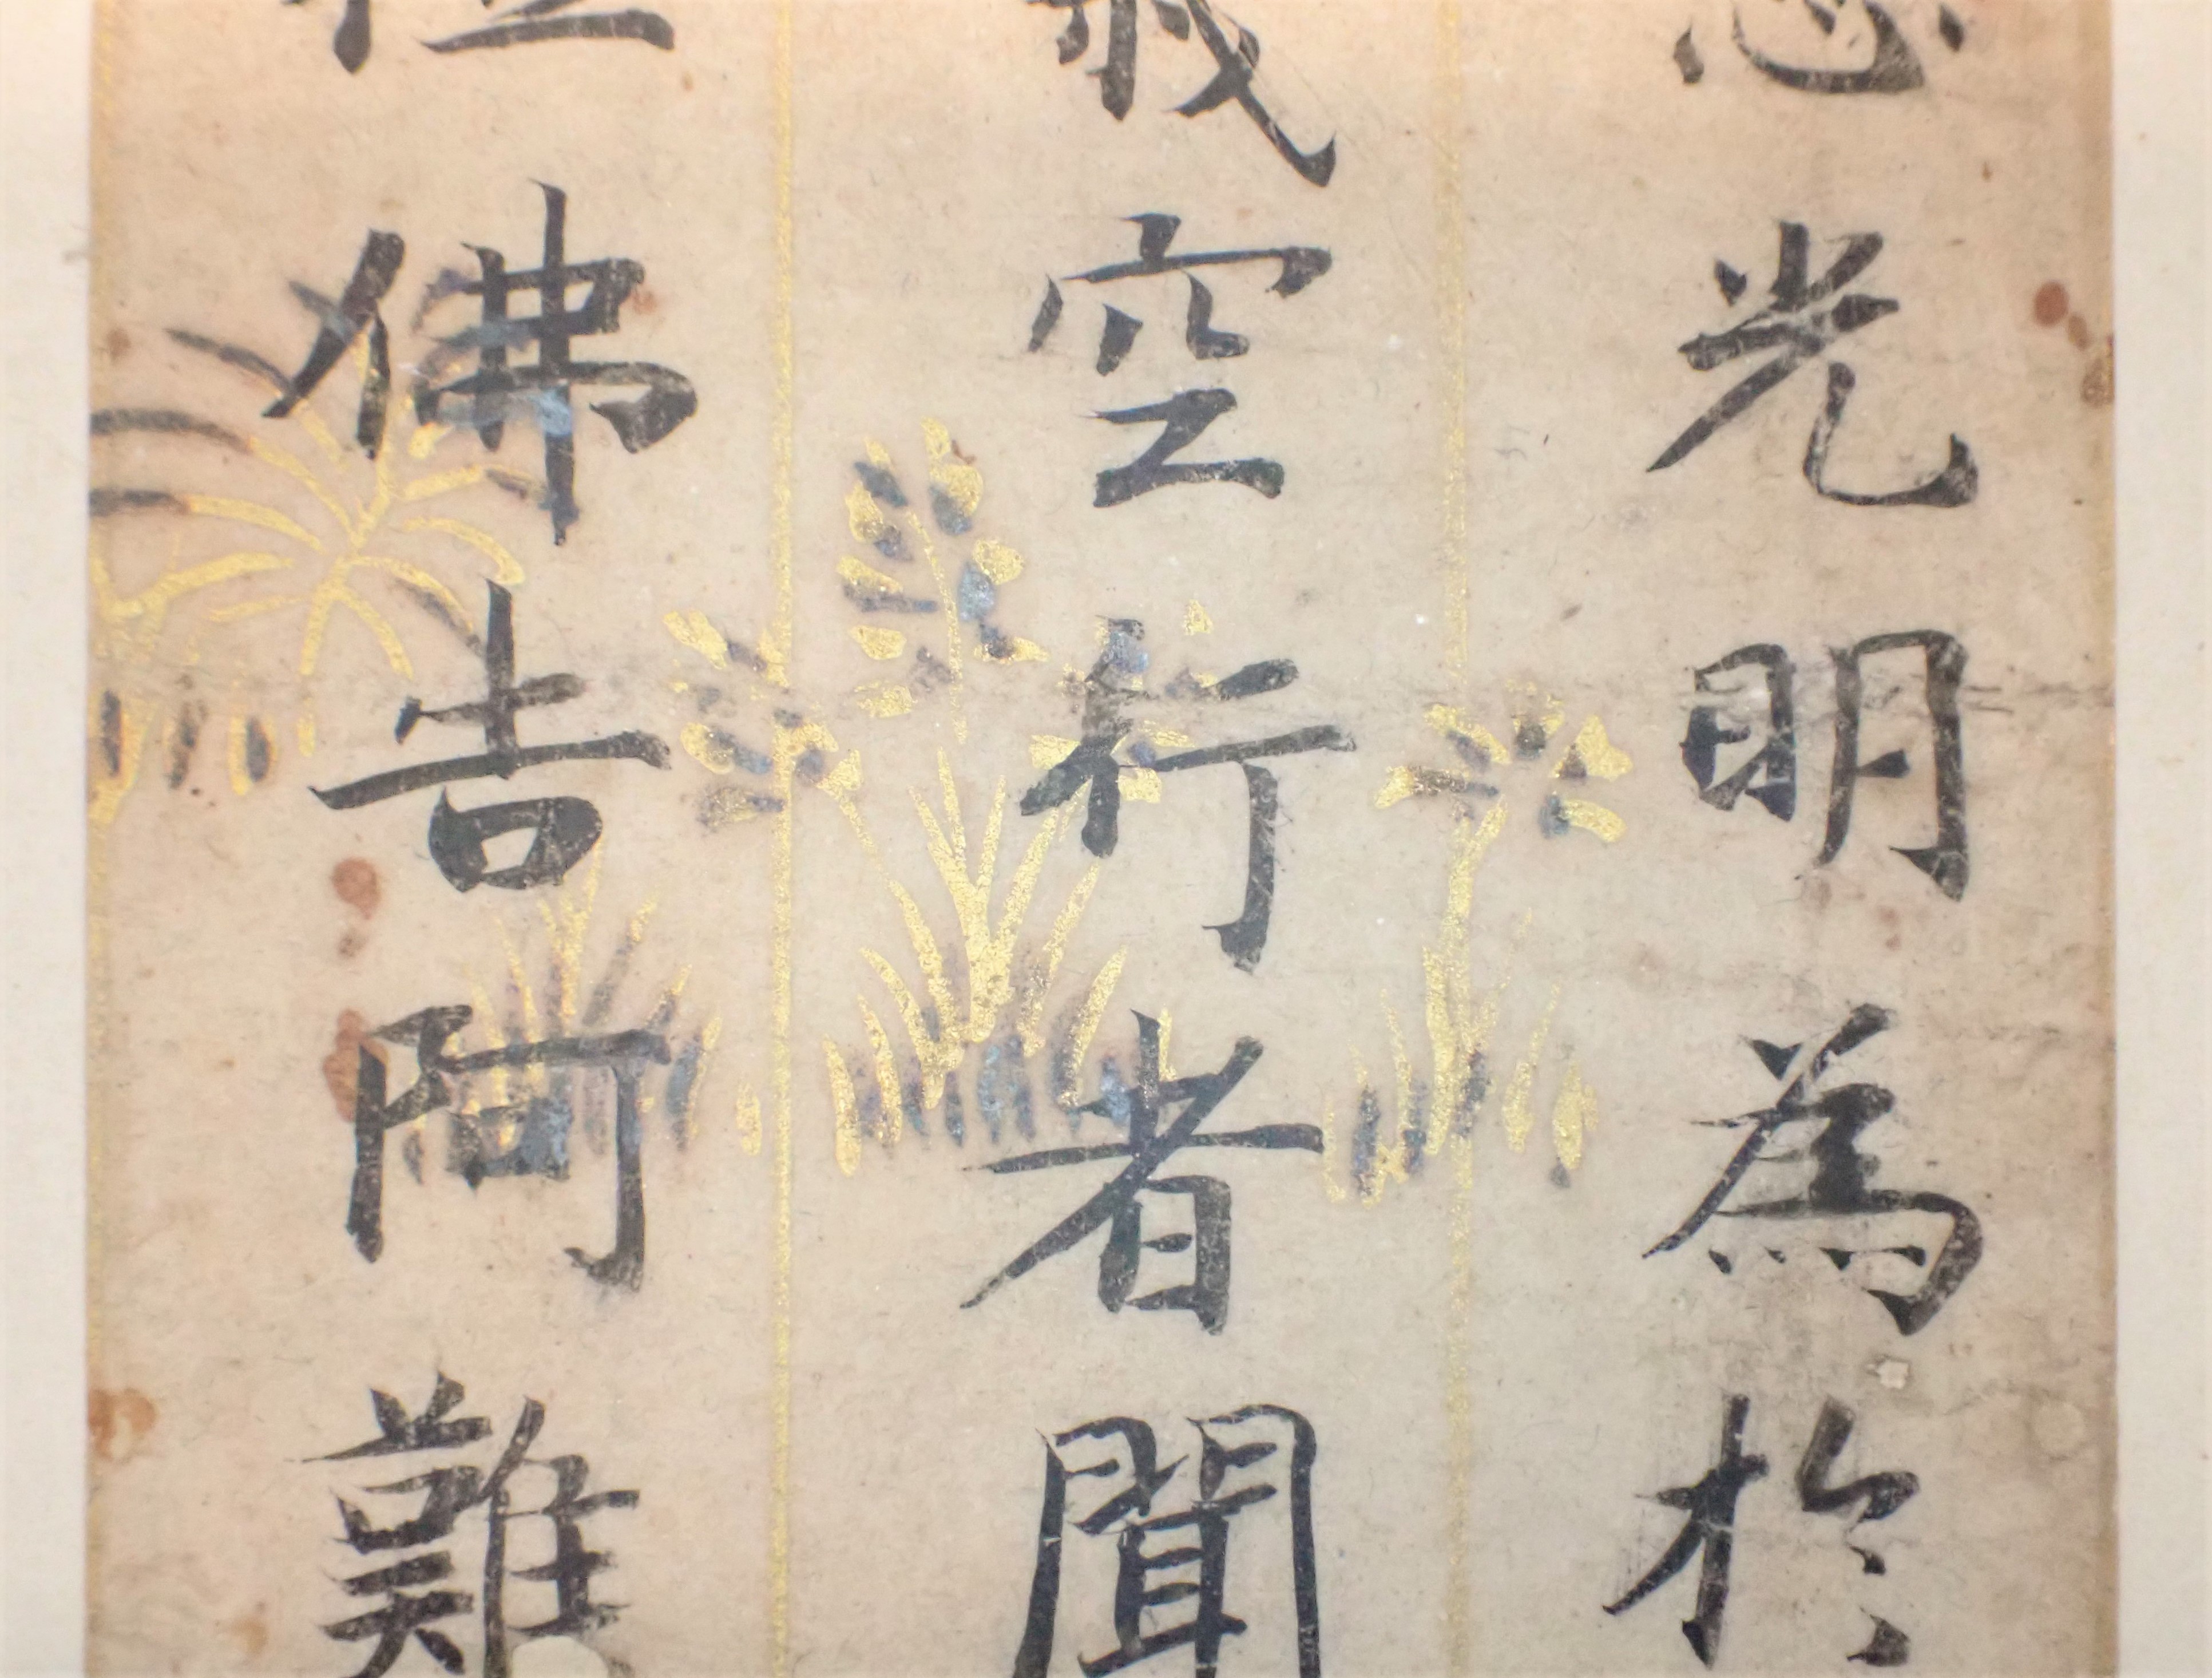 光明為於
空行者聞
佛告阿難